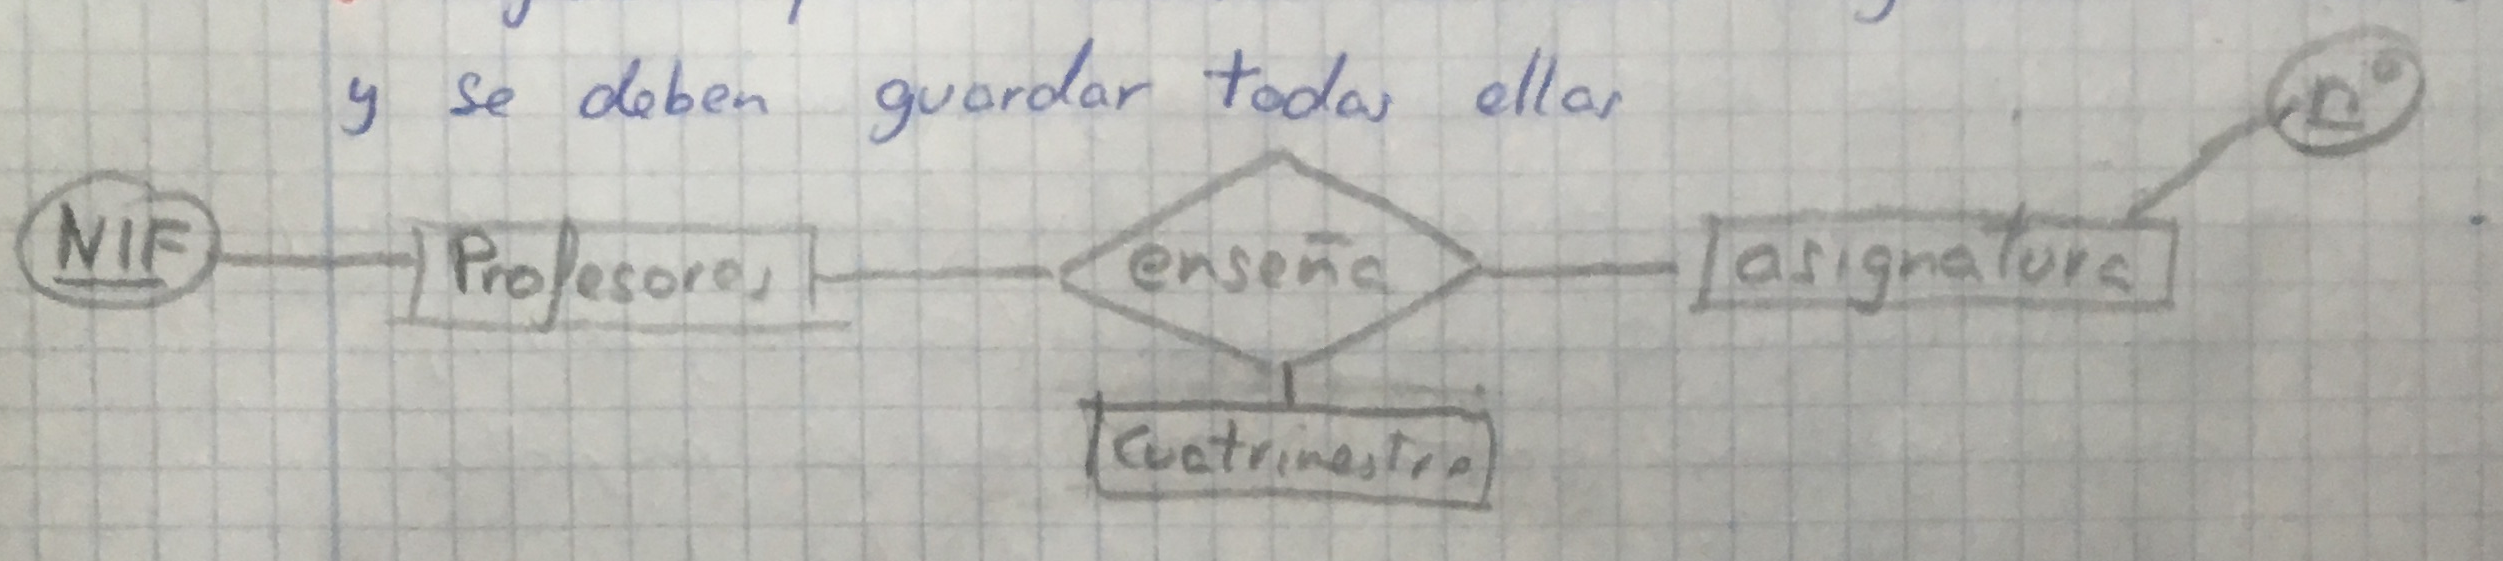 y se deben guardar todas ellas
nº
NIF
Profesores
enseña
asignatura
Cuatrimestre